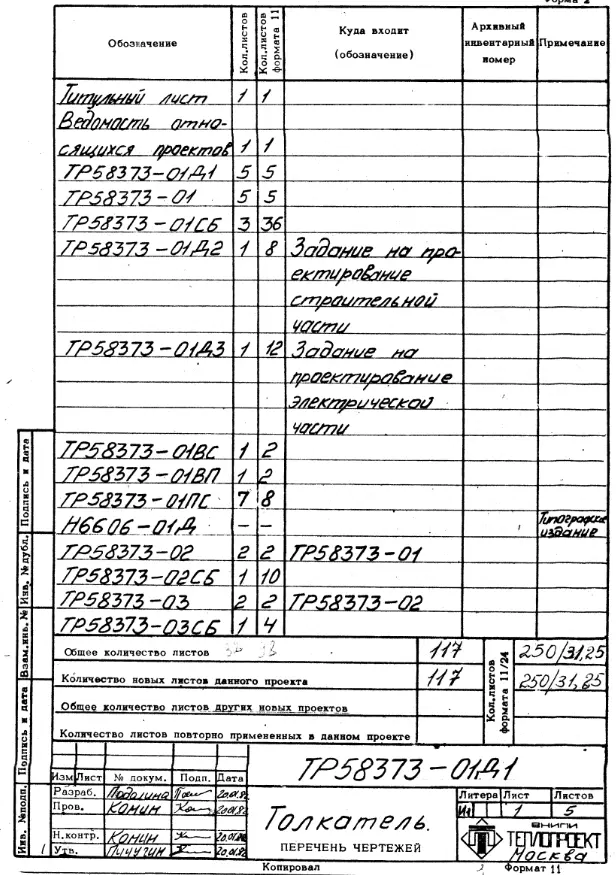 Форма 2
Обозначение
Кол.листов
Кол.листов формата 11
Куда входит
(обозначение)
Архивный инвентарный номер
Примечание
Титульный лист 1 1
Ведомость отно-
сящихся проектов 1 1
ТР58373-01Д1 5 5
ТР58373-01 5 5
ТР58373-01СБ 3 36
ТР58373-01Д2 1 8 Задание на про-
ектирование
строительной
части
ТР58373-01Д3 1 12 Задание на
проектирование
электрической
части
ТР58373-01ВС 1 2
ТР58373-01ВП 1 2
ТР58373-01ПС 7 8
Н6606-01Д – – Типографское
издание
ТР58373-02 2 2 ТР58373-01
ТР58373-02СБ 1 10
ТР58373-03 2 2 ТР58373-02
ТР58373-03СБ 1 4
Общее количество листов 117 250/31,25
Количество новых листов данного проекта 117 250/31,25
Кол.листов формата 11/24
Общее количество листов других новых проектов
Количество листов повторно примененных в данном проекте
Подпись и дата
Инв. № дубл.
Взам.инв. №
Подпись и дата
Инв. №подл.
ТР58373-01Д1
Изм Лист № докум. Подп. Дата
Разраб. Подолина
Пров. Комин
Н.контр. Комин
Утв. Пичугин
Толкатель.
ПЕРЕЧЕНЬ ЧЕРТЕЖЕЙ
Литера Лист Листов
И1 1 5
ВНИПИ
ТЕПЛОПРОЕКТ
Москва
1
Копировал
Формат 11